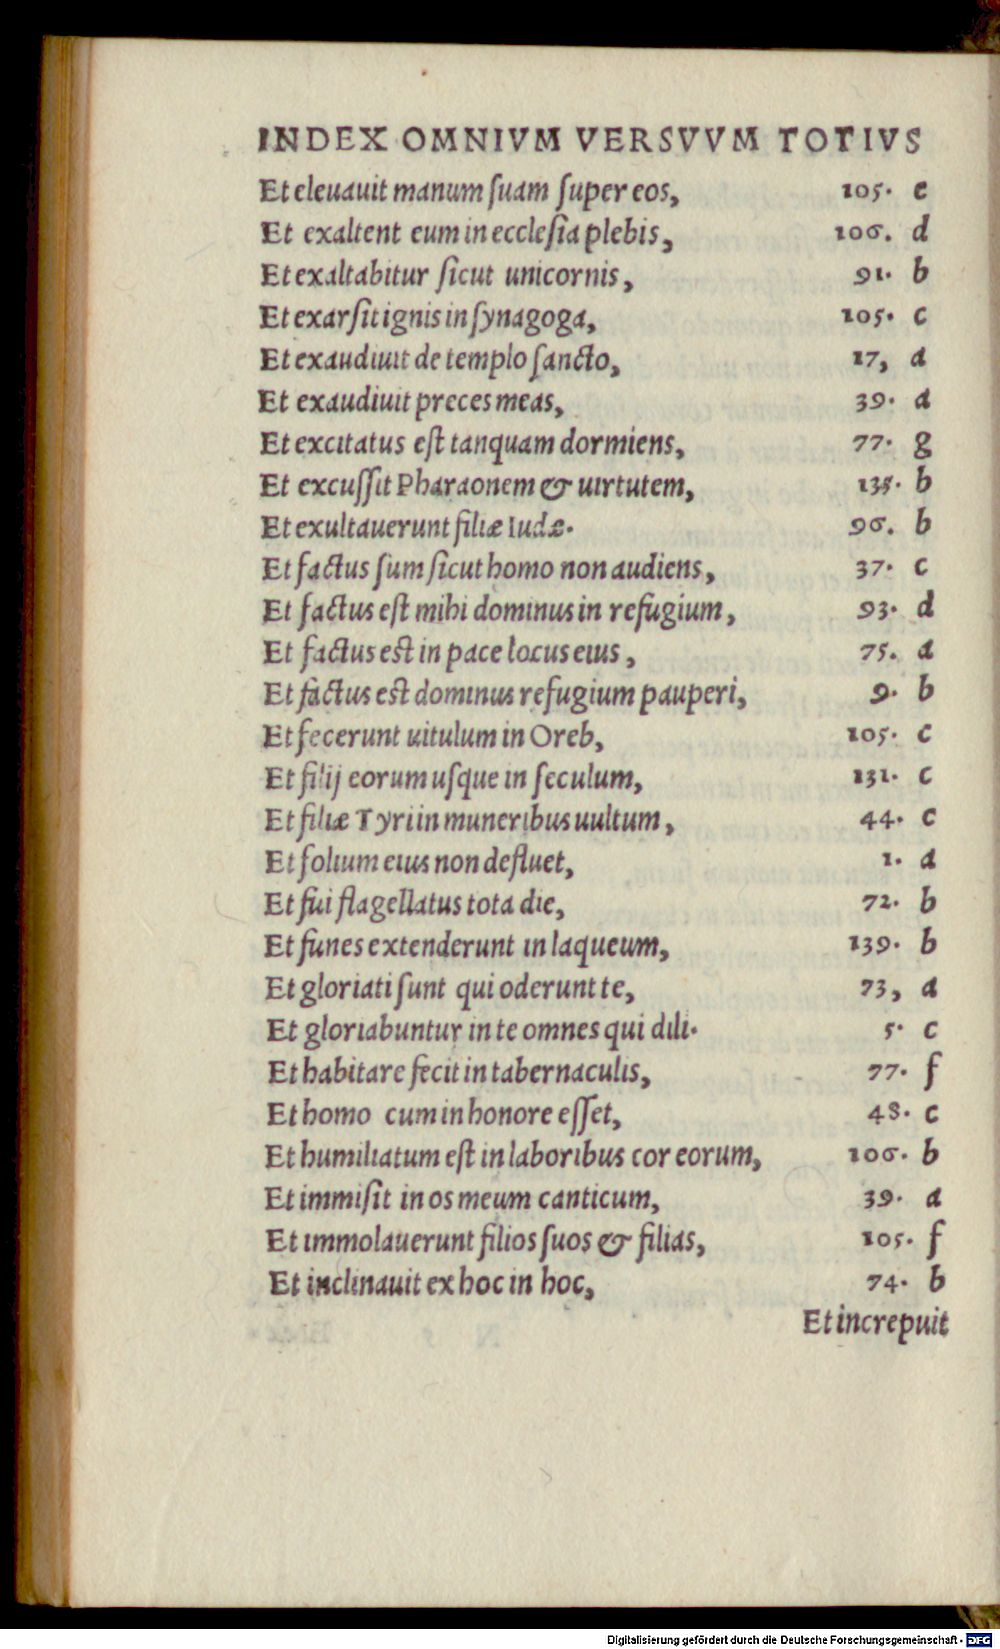 INDEX OMNIVM VERSVVM TOTIVS
Et eleuauit manum ſuam ſuper eos, 105. e
Et exaltent eum in eccleſia plebis, 106. d
Et exaltabitur ſicut unicornis, 91. b
Et exarſit ignis in ſynagoga, 105. c
Et exaudiuit de templo ſancto, 17, a
Et exaudiuit preces meas, 39. a
Et excitatus eſt tanquam dormiens, 77. g
Et excuſſit Pharaonem & uirtutem, 135. b
Et exultauerunt filiæ Iudæ. 96. b
Et factus ſum ſicut homo non audiens, 37. c
Et factus eſt mihi dominus in refugium, 93. d
Et factus eſt in pace locus eius, 75. a
Et factus eſt dominus refugium pauperi, 9. b
Et fecerunt uitulum in Oreb, 105. c
Et filij eorum uſque in ſeculum, 131. c
Et filiæ Tyri in muneribus uultum, 44. c
Et folium eius non defluet, 1. a
Et fui flagellatus tota die, 72. b
Et funes extenderunt in laqueum, 139. b
Et gloriati ſunt qui oderunt te, 73, a
Et gloriabuntur in te omnes qui dili. 5. c
Et habitare fecit in tabernaculis, 77. f
Et homo cum in honore eſſet, 48. c
Et humiliatum eſt in laboribus cor eorum, 106. b
Et immiſit in os meum canticum, 39. a
Et immolauerunt filios ſuos & filias, 105. f
Et inclinauit ex hoc in hoc, 74. b
Et increpuit
Digitalisierung gefördert durch die Deutsche Forschungsgemeinschaft - DFG